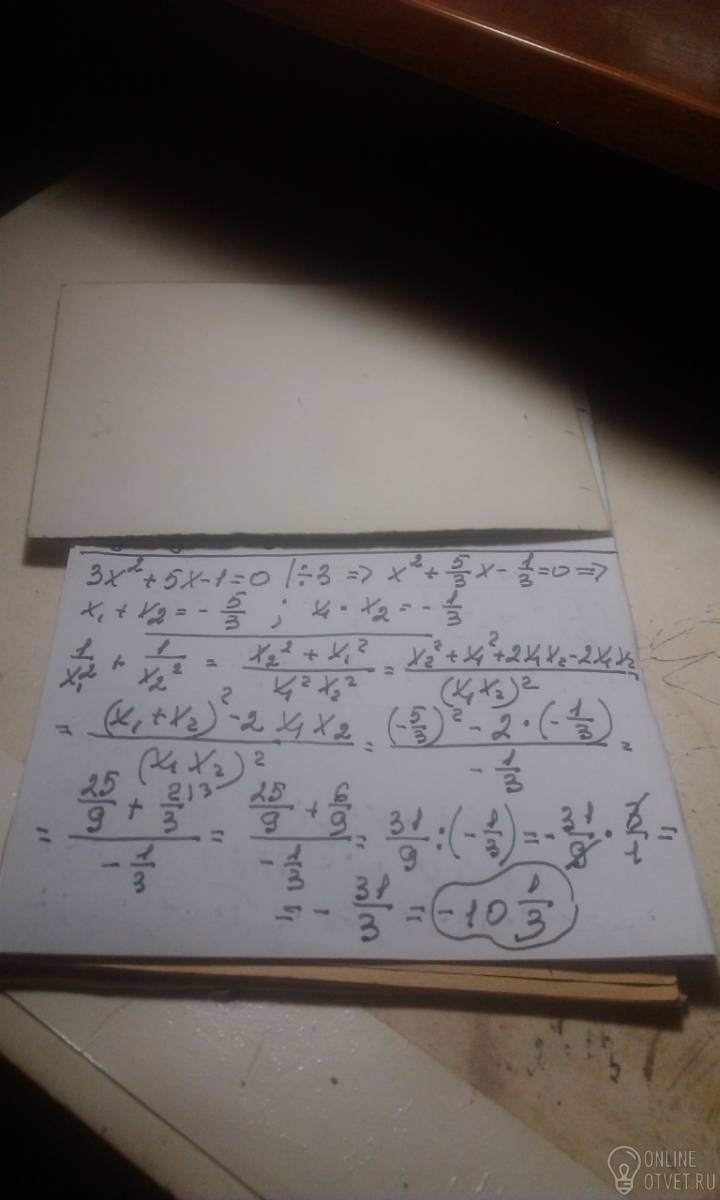 3x² + 5x - 1 = 0 | ÷3 => x² + 5/3 x - 1/3 = 0 =>
x₁ + x₂ = - 5/3 ; x₁ · x₂ = - 1/3
1/x₁² + 1/x₂² = (x₂² + x₁²)/(x₁² x₂²) = (x₂² + x₁² + 2x₁x₂ - 2x₁x₂)/(x₁x₂)² =
= ((x₁ + x₂)² - 2 x₁ x₂)/(x₁ x₂)² = ((-5/3)² - 2 · (-1/3))/(-1/3) =
= (25/9 + 2/3 ⁽³)/(-1/3) = (25/9 + 6/9)/(-1/3) = 31/9 : (-1/3) = - 31/9 · 3/1 =
= - 31/3 = -10 1/3
ONLINE
OTVET.RU